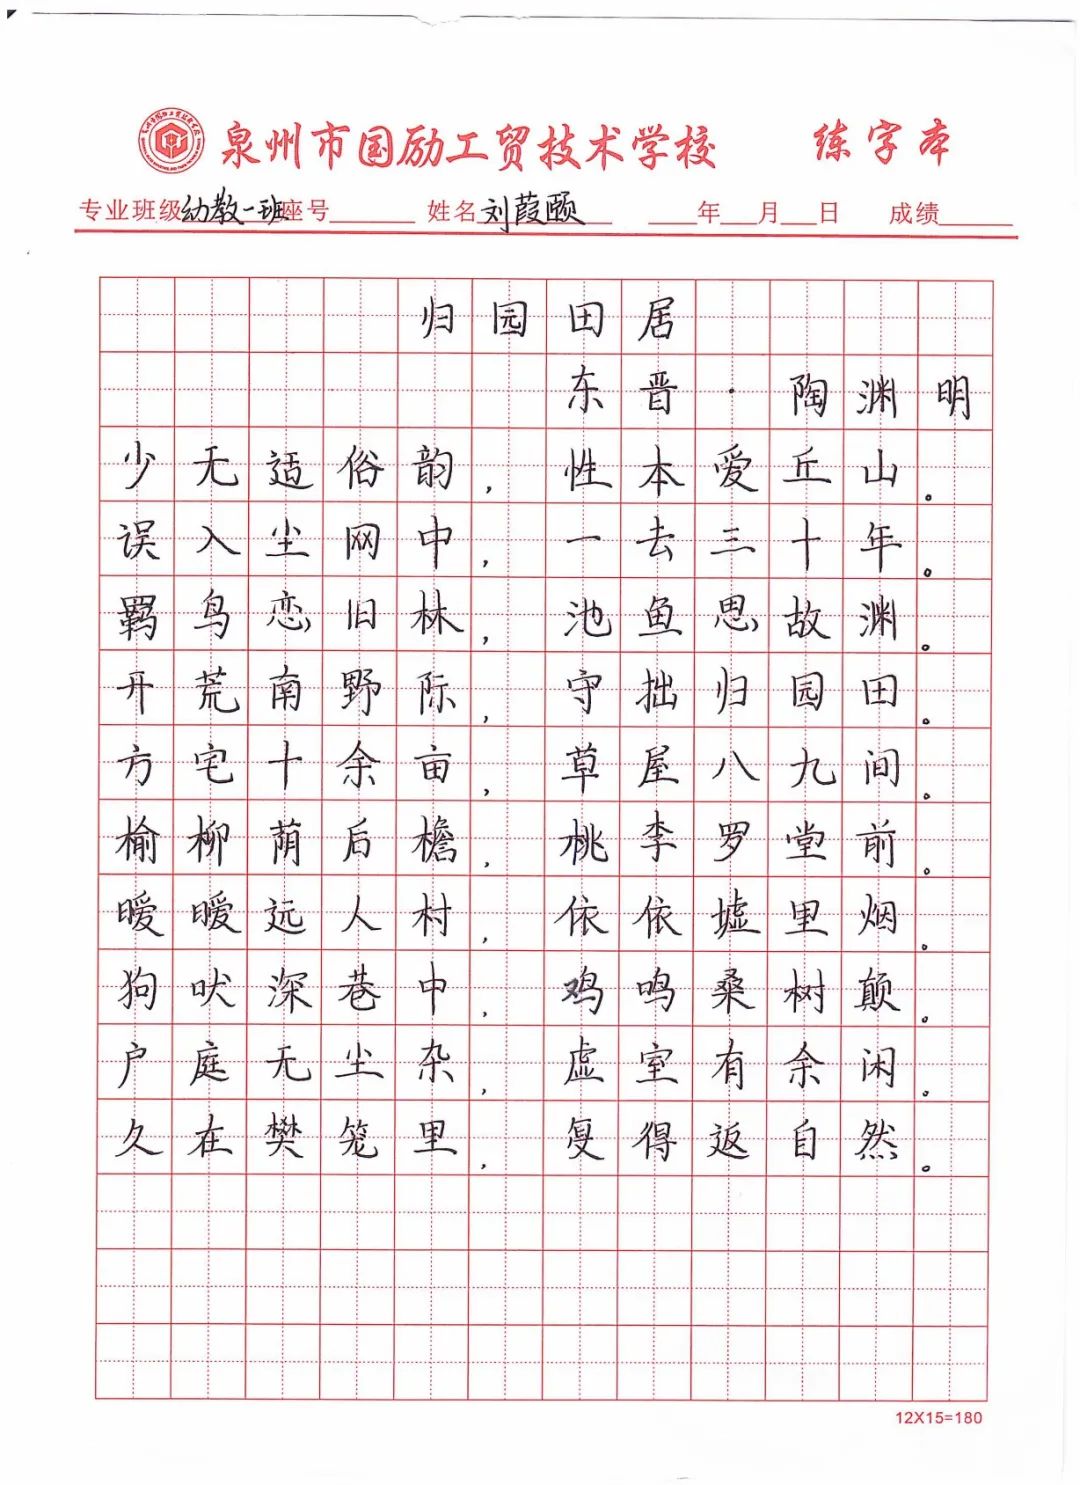 泉州市国励工贸技术学校 练字本
专业班级幼教一班座号 姓名刘葭颐 年 月 日 成绩
归园田居
东晋·陶渊明
少无适俗韵,性本爱丘山。
误入尘网中,一去三十年。
羁鸟恋旧林,池鱼思故渊。
开荒南野际,守拙归园田。
方宅十余亩,草屋八九间。
榆柳荫后檐,桃李罗堂前。
暧暧远人村,依依墟里烟。
狗吠深巷中,鸡鸣桑树颠。
户庭无尘杂,虚室有余闲。
久在樊笼里,复得返自然。
12X15=180